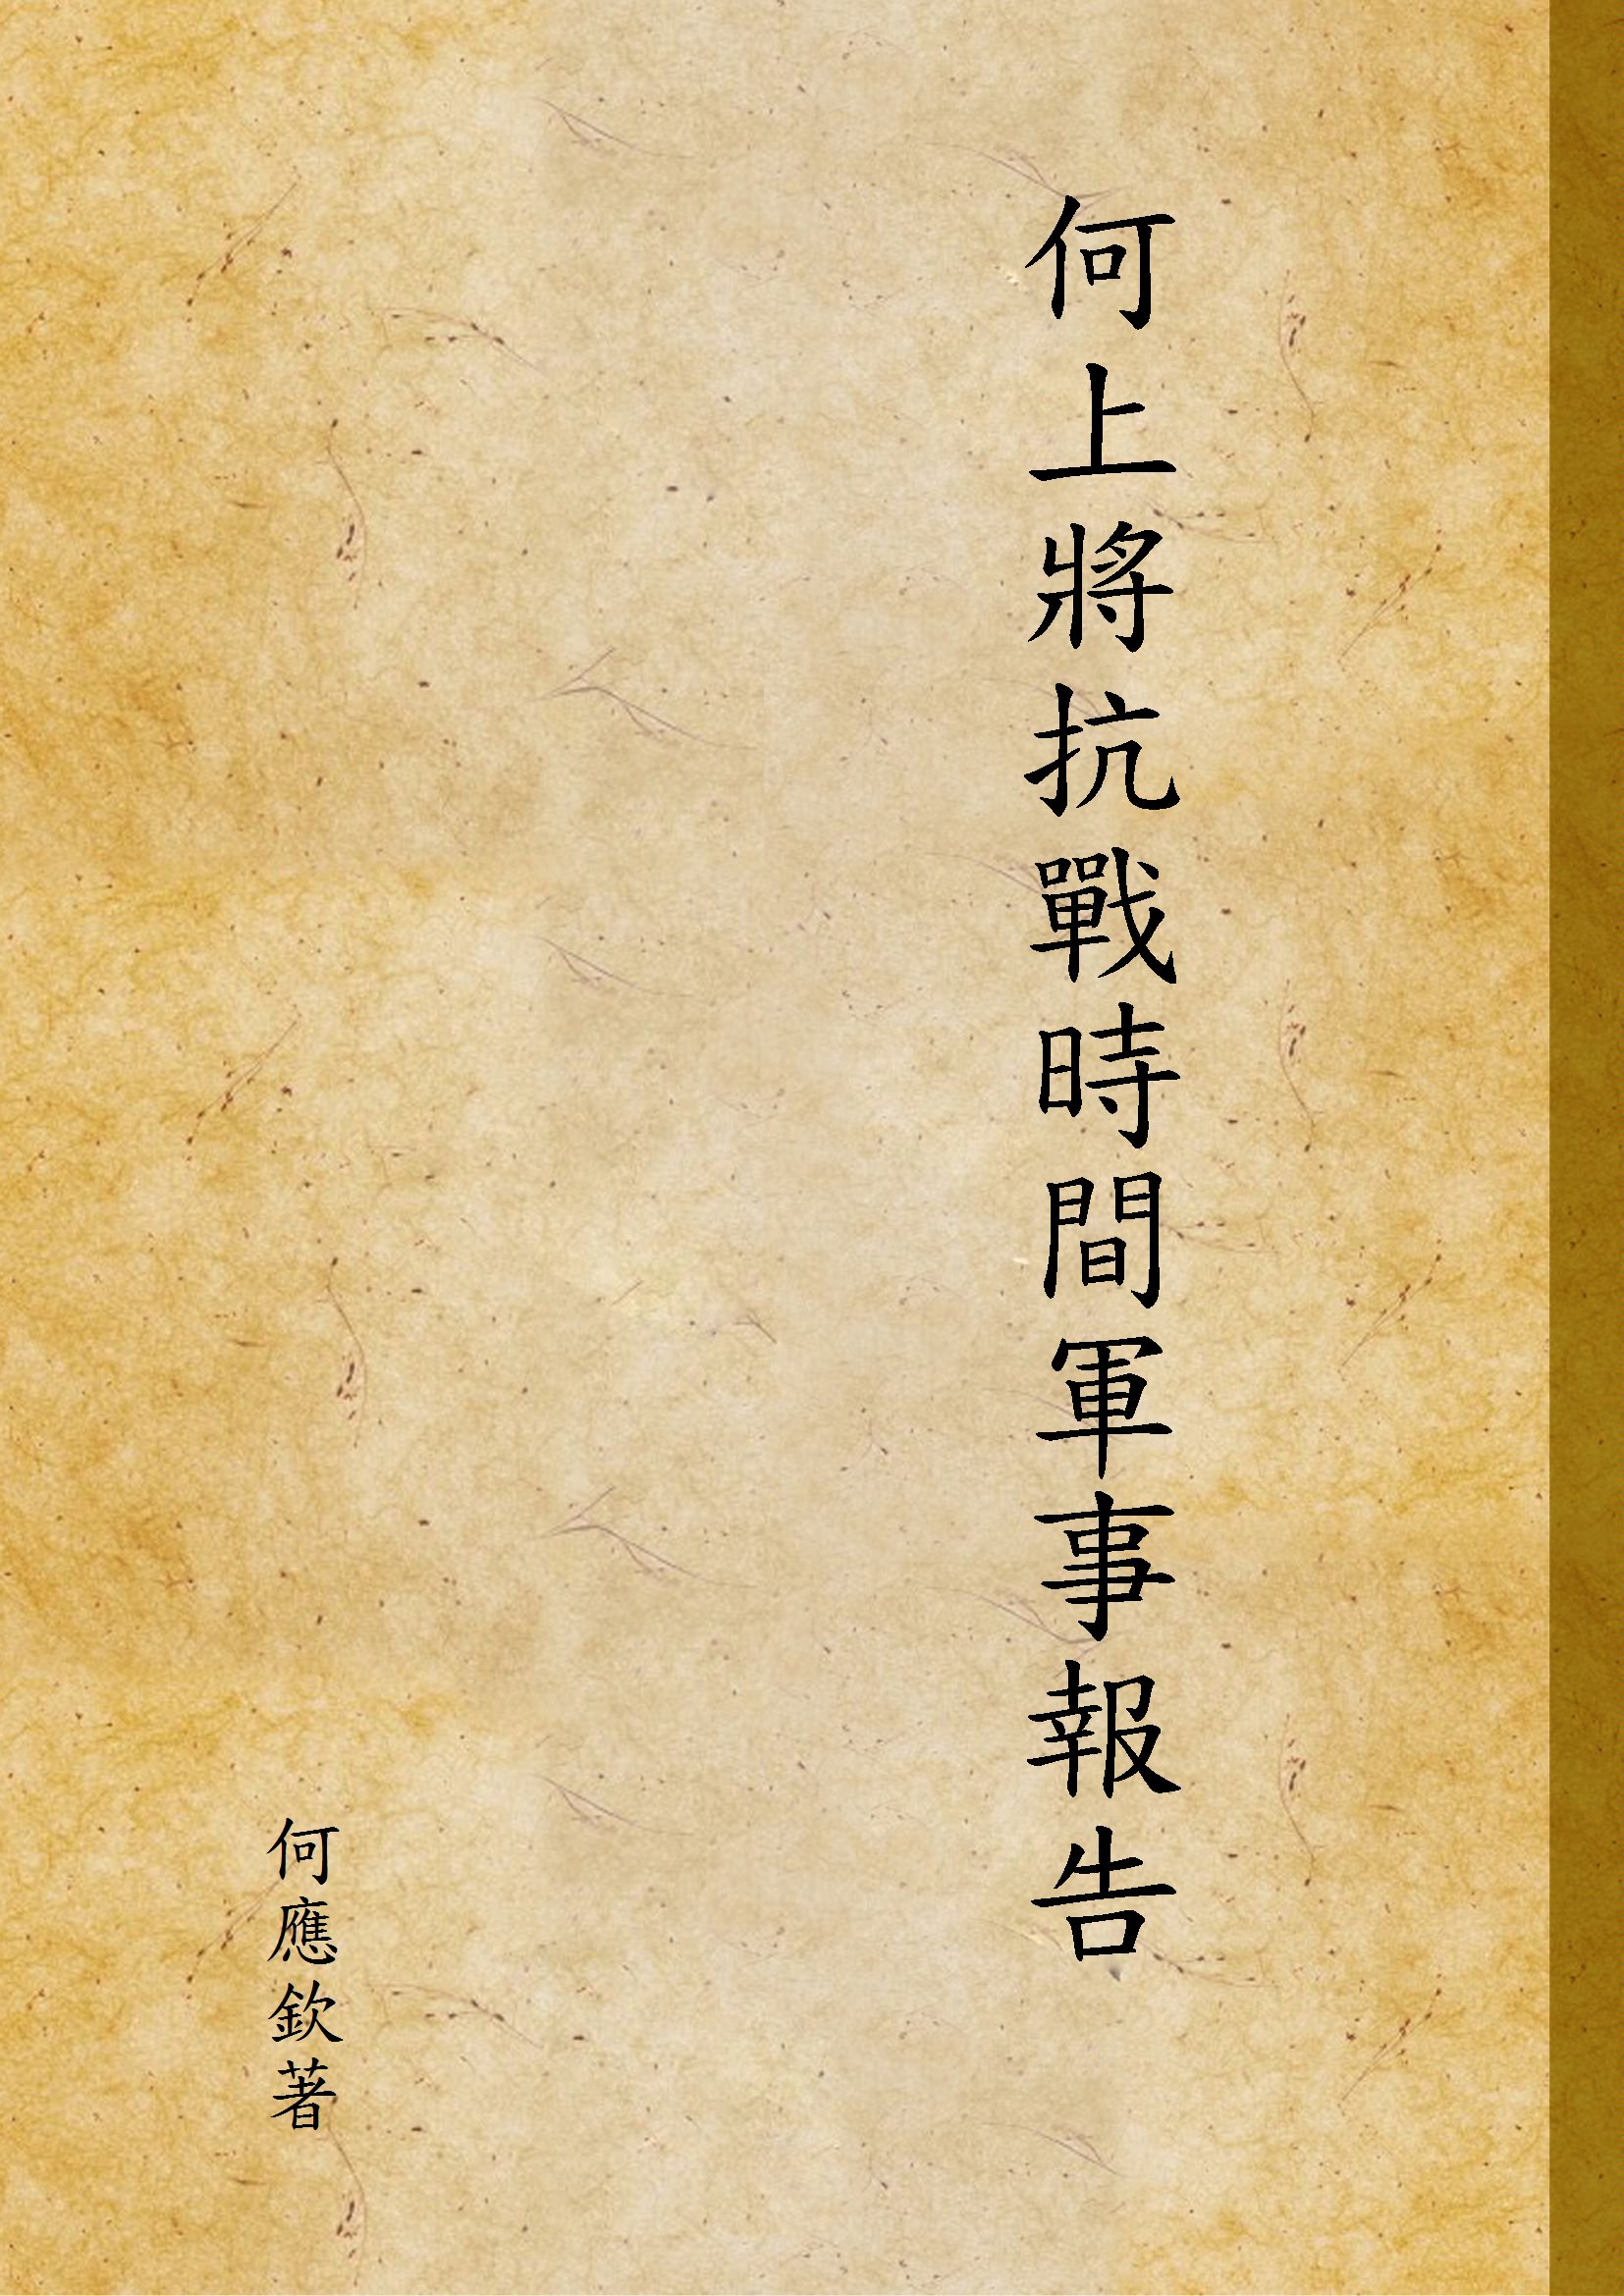 何上將抗戰時間軍事報告
何應欽著